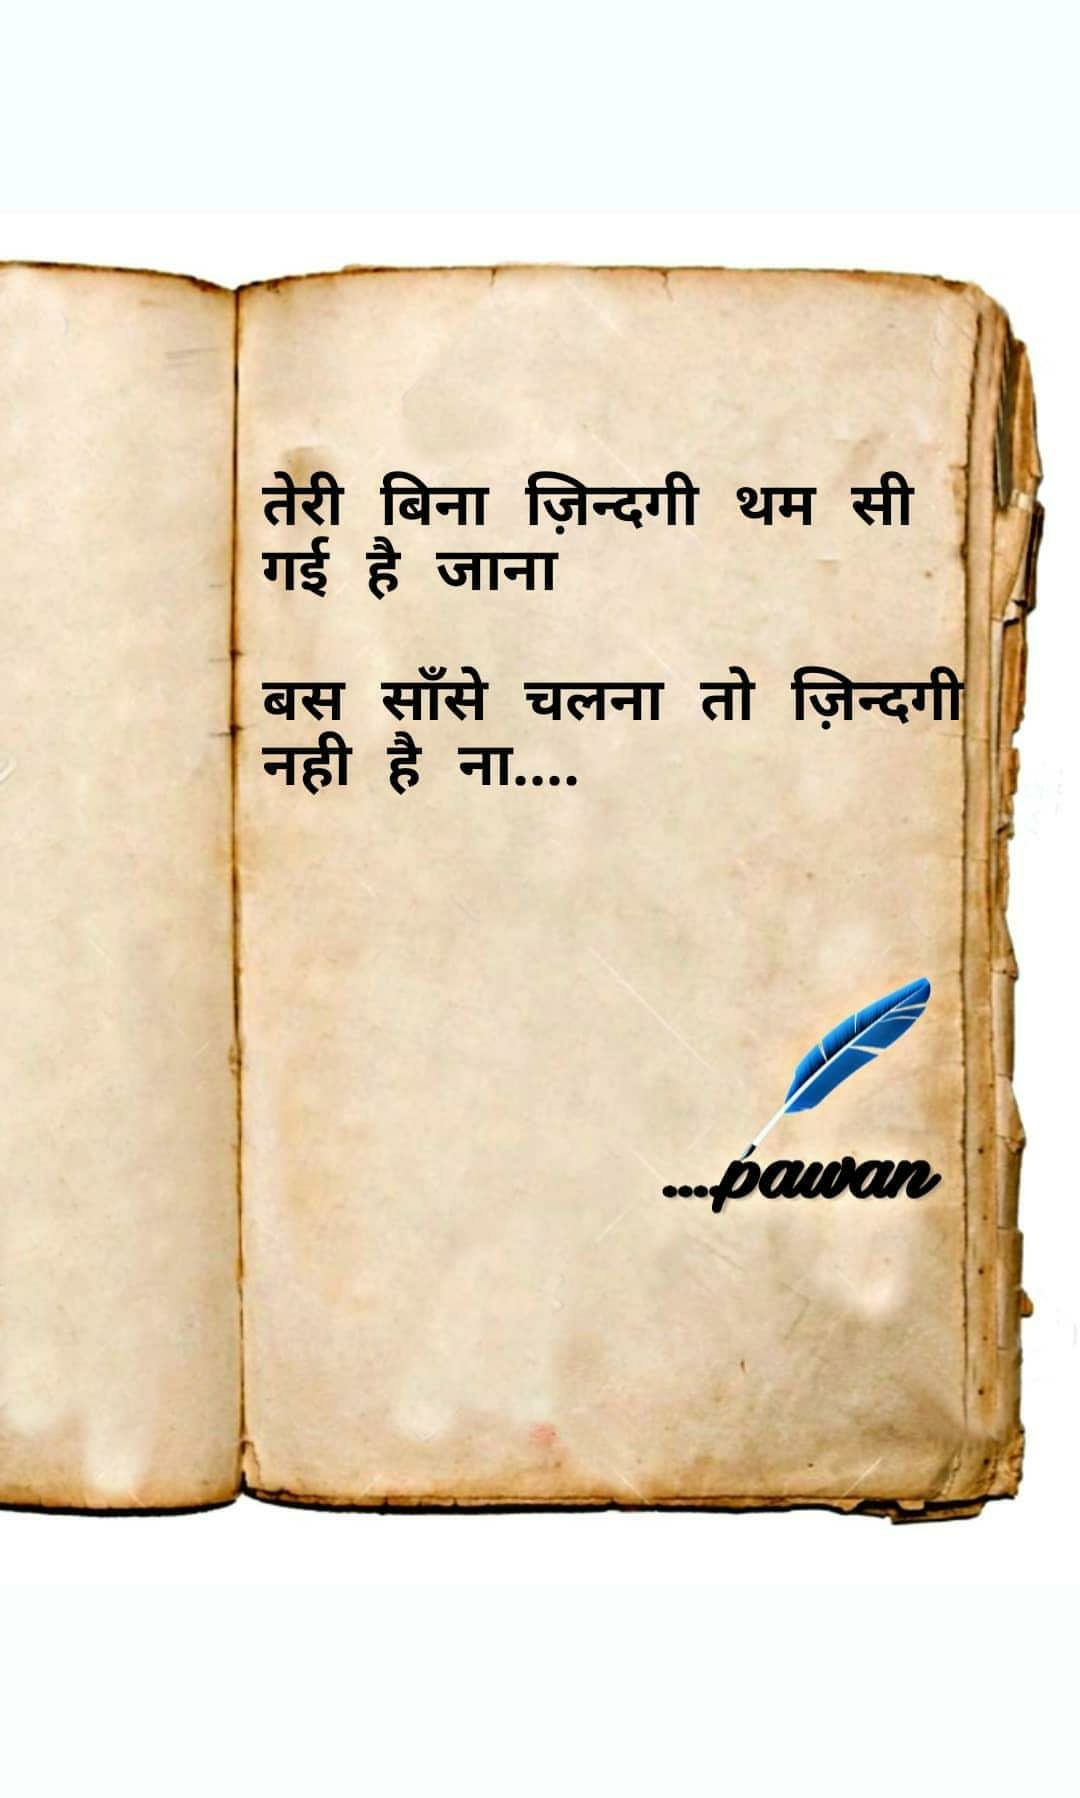 तेरी बिना ज़िन्दगी थम सी
गई है जाना
बस साँसे चलना तो ज़िन्दगी
नही है ना....
....pawan